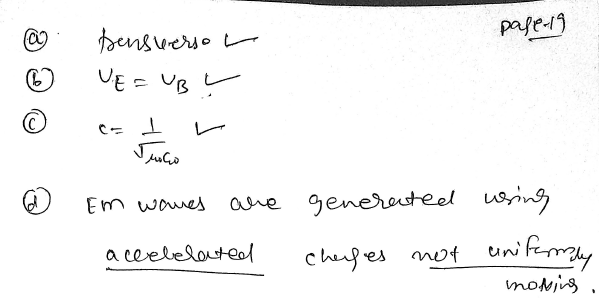 page-19
(a) transverse ✓
(b) U_E = U_B ✓
(c) c = 1/√μ₀ε₀ ✓
(d) EM waves are generated using
accelelated charges not uniformly
moving.